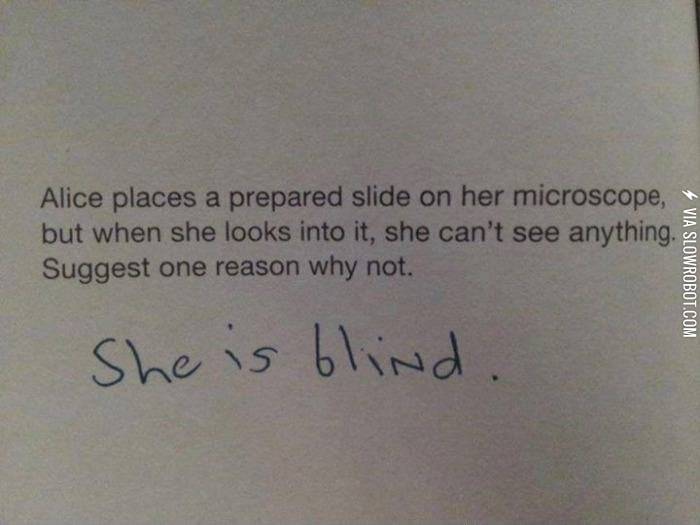 Alice places a prepared slide on her microscope,
but when she looks into it, she can't see anything.
Suggest one reason why not.
She is blind.
VIA SLOWROBOT.COM